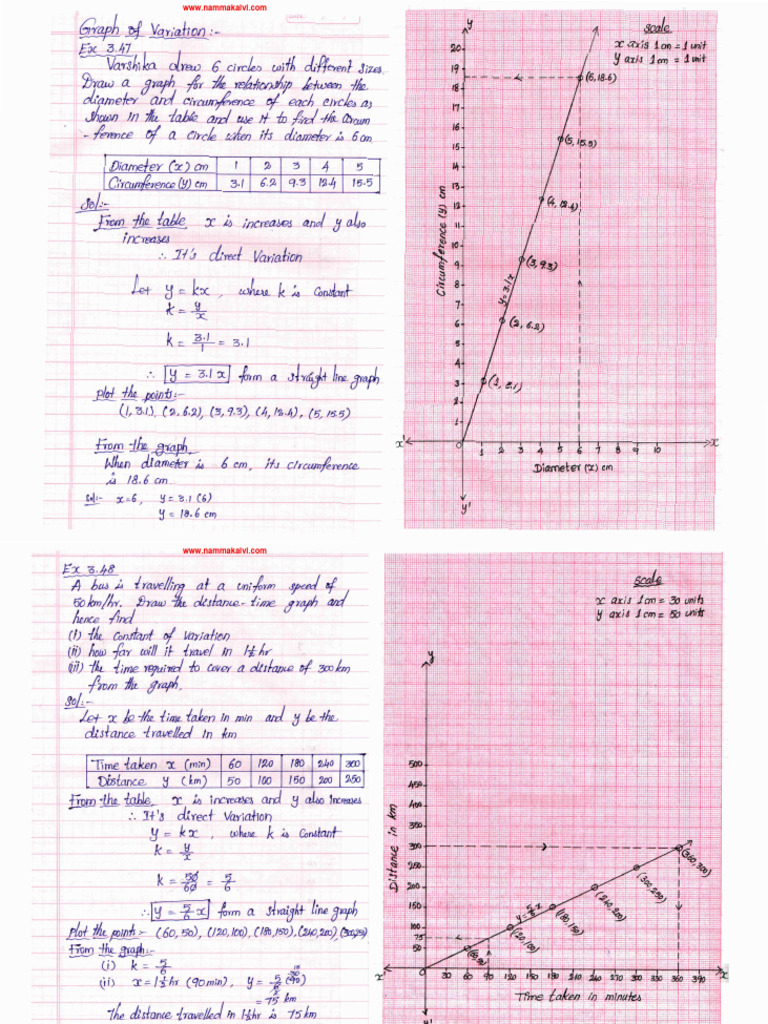 www.nammakalvi.com
Graph of Variation:-
Ex 3.47
Varshika drew 6 circles with different sizes.
Draw a graph for the relationship between the
diameter and circumference of each circles as
shown in the table and use it to find the circum
-ference of a circle when its diameter is 6 cm
Diameter (x) cm 1 2 3 4 5
Circumference (y) cm 3.1 6.2 9.3 12.4 15.5
Sol:-
From the table x is increases and y also
increases
∴ It's direct Variation
Let y = kx, where k is Constant
k = y/x
k = 3.1/1 = 3.1
∴ y = 3.1x form a straight line graph
Plot the points:-
(1, 3.1), (2, 6.2), (3, 9.3), (4, 12.4), (5, 15.5)
From the graph
When diameter is 6 cm, its circumference
is 18.6 cm
Sol:- x=6, y = 3.1 (6)
y = 18.6 cm
Scale
x axis 1 cm = 1 unit
y axis 1 cm = 1 unit
y
20
19
18
17
16
15
14
13
12
11
10
9
8
7
6
5
4
3
2
1
(6, 18.6)
(5, 15.5)
(4, 12.4)
(3, 9.3)
(2, 6.2)
(1, 3.1)
y = 3.1x
Circumference (y) cm
x' 0 x
1 2 3 4 5 6 7 8 9 10
Diameter (x) cm
y'
www.nammakalvi.com
Ex 3.48
A bus is travelling at a uniform speed of
50 km/hr. Draw the distance-time graph and
hence find
(i) the constant of variation
(ii) how far will it travel in 1½ hr
(iii) the time required to cover a distance of 300 km
from the graph.
Sol:-
Let x be the time taken in min and y be the
distance travelled in km
Time taken x (min) 60 120 180 240 300
Distance y (km) 50 100 150 200 250
From the table x is increases and y also increases
∴ It's direct Variation
y = kx, where k is Constant
k = y/x
k = 50/60 = 5/6
∴ y = 5/6 x form a straight line graph
Plot the points:- (60, 50), (120, 100), (180, 150), (240, 200), (300, 250)
From the graph:-
(i) k = 5/6
(ii) x = 1½ hr (90 min), y = 5/6 (90)
= 75 km
The distance travelled in 1½ hr is 75 km
Scale
x axis 1 cm = 30 units
y axis 1 cm = 50 units
y
500
450
400
350
300
250
200
150
100
75
50
(360, 300)
(300, 250)
(240, 200)
(180, 150)
(120, 100)
(60, 50)
y = 5/6 x
Distance in km
x' 0 x
30 60 90 120 150 180 210 240 270 300 330 360 390
Time taken in minutes
y'